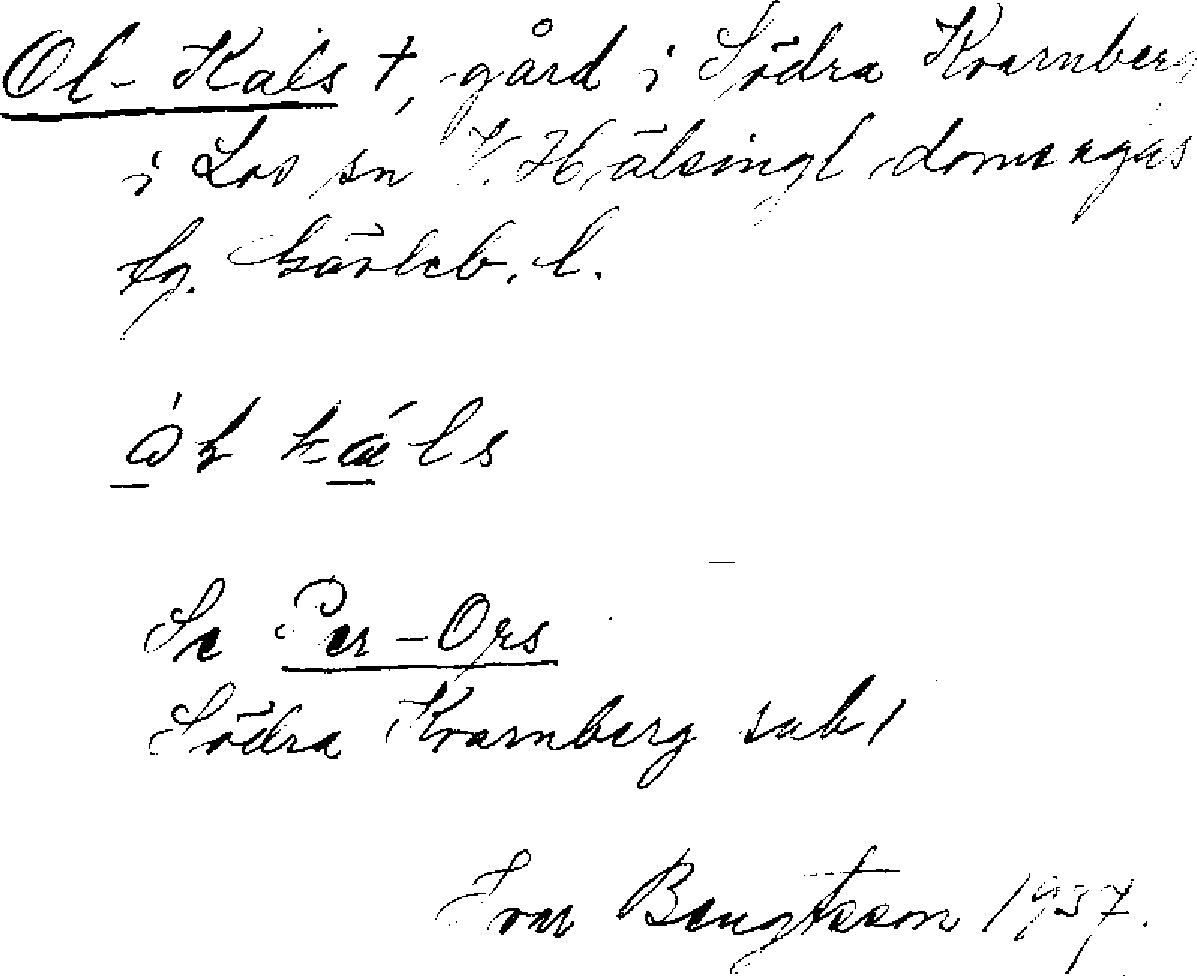 Ol-Kals †, gård i Södra Kvarnberg
i Los sn V. Hälsingl domsagas
tg. Gävleb. l.
kals
Se Per-Ors
Södra Kvarnberg
Ivar Bengtsson 1937.